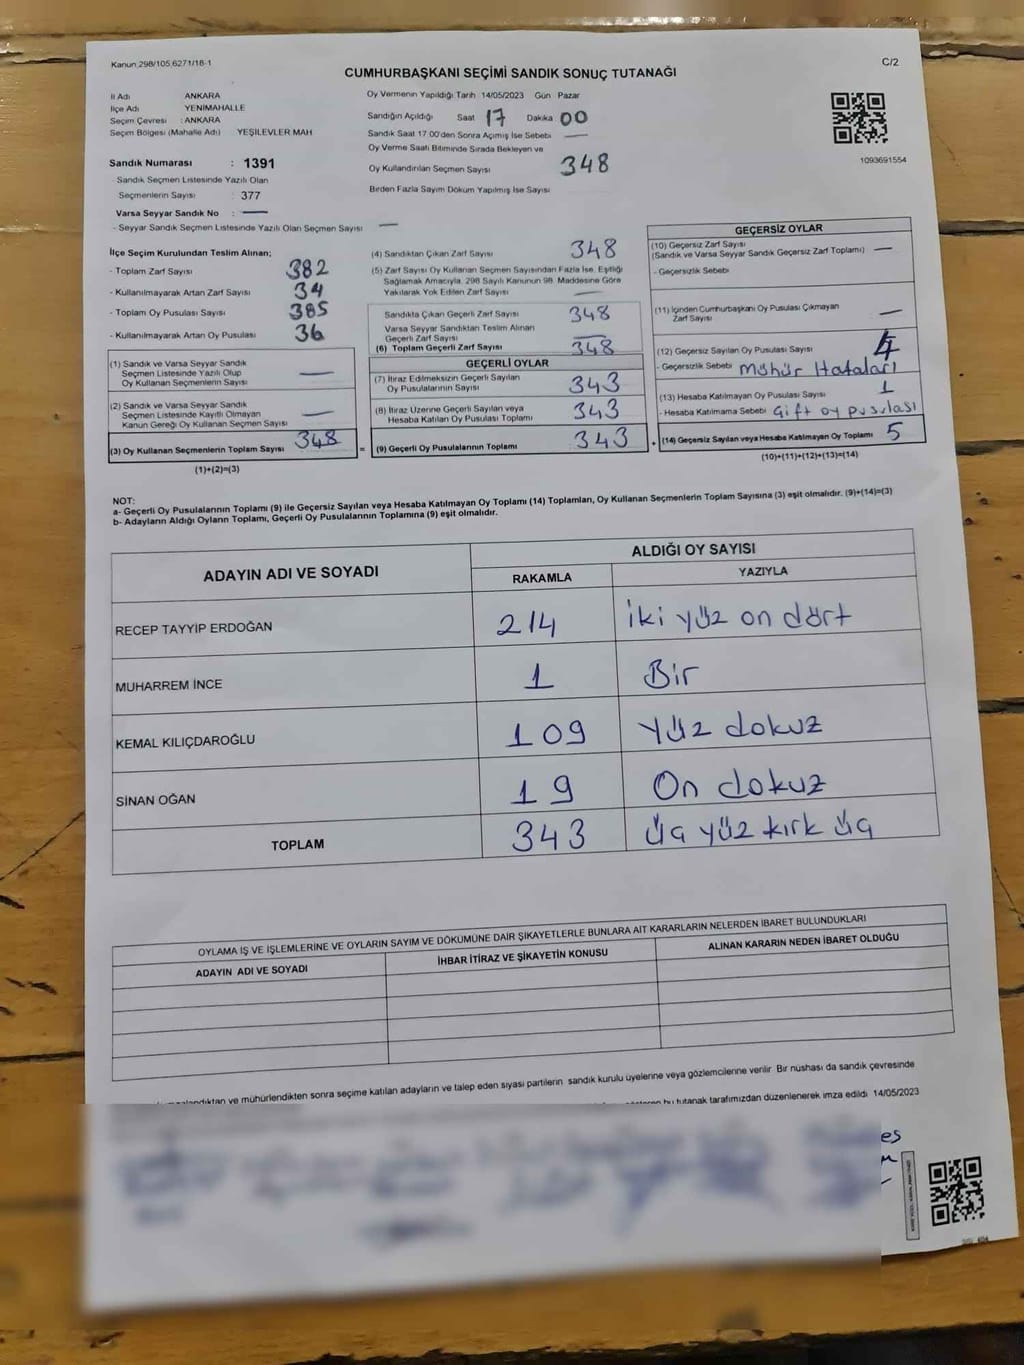 Kanun 298/105,6271/18-1
C/2
CUMHURBAŞKANI SEÇİMİ SANDIK SONUÇ TUTANAĞI
İl Adı ANKARA
İlçe Adı YENİMAHALLE
Seçim Çevresi : ANKARA
Seçim Bölgesi (Mahalle Adı) YEŞİLEVLER MAH
Sandık Numarası : 1391
- Sandık Seçmen Listesinde Yazılı Olan
Seçmenlerin Sayısı : 377
Varsa Seyyar Sandık No : —
- Seyyar Sandık Seçmen Listesinde Yazılı Olan Seçmen Sayısı —
Oy Vermenin Yapıldığı Tarih 14/05/2023 Gün Pazar
Sandığın Açıldığı Saat 17 Dakika 00
Sandık Saat 17:00'den Sonra Açılmış İse Sebebi —
Oy Verme Saati Bitiminde Sırada Bekleyen ve
Oy Kullandırılan Seçmen Sayısı 348
Birden Fazla Sayım Döküm Yapılmış İse Sayısı
1093691554
İlçe Seçim Kurulundan Teslim Alınan;
- Toplam Zarf Sayısı 382
- Kullanılmayarak Artan Zarf Sayısı 34
- Toplam Oy Pusulası Sayısı 385
- Kullanılmayarak Artan Oy Pusulası 36
(1) Sandık ve Varsa Seyyar Sandık
Seçmen Listesinde Yazılı Olup
Oy Kullanan Seçmenlerin Sayısı —
(2) Sandık ve Varsa Seyyar Sandık
Seçmen Listesinde Kayıtlı Olmayan
Kanun Gereği Oy Kullanan Seçmen Sayısı —
(3) Oy Kullanan Seçmenlerin Toplam Sayısı 348
(1)+(2)=(3)
(4) Sandıktan Çıkan Zarf Sayısı 348
(5) Zarf Sayısı Oy Kullanan Seçmen Sayısından Fazla İse, Eşitliği
Sağlamak Amacıyla, 298 Sayılı Kanunun 98. Maddesine Göre
Yakılarak Yok Edilen Zarf Sayısı —
Sandıkta Çıkan Geçerli Zarf Sayısı 348
Varsa Seyyar Sandıktan Teslim Alınan
Geçerli Zarf Sayısı —
(6) Toplam Geçerli Zarf Sayısı 348
GEÇERLİ OYLAR
(7) İtiraz Edilmeksizin Geçerli Sayılan
Oy Pusulalarının Sayısı 343
(8) İtiraz Üzerine Geçerli Sayılan veya
Hesaba Katılan Oy Pusulası Toplamı 343
= (9) Geçerli Oy Pusulalarının Toplamı 343 +
GEÇERSİZ OYLAR
(10) Geçersiz Zarf Sayısı
(Sandık ve Varsa Seyyar Sandık Geçersiz Zarf Toplamı) —
- Geçersizlik Sebebi
(11) İçinden Cumhurbaşkanı Oy Pusulası Çıkmayan
Zarf Sayısı —
(12) Geçersiz Sayılan Oy Pusulası Sayısı 4
- Geçersizlik Sebebi Mühür Hataları
(13) Hesaba Katılmayan Oy Pusulası Sayısı 1
- Hesaba Katılmama Sebebi Çift oy pusulası
(14) Geçersiz Sayılan veya Hesaba Katılmayan Oy Toplamı 5
(10)+(11)+(12)+(13)=(14)
NOT:
a- Geçerli Oy Pusulalarının Toplamı (9) ile Geçersiz Sayılan veya Hesaba Katılmayan Oy Toplamı (14) Toplamları, Oy Kullanan Seçmenlerin Toplam Sayısına (3) eşit olmalıdır. (9)+(14)=(3)
b- Adayların Aldığı Oyların Toplamı, Geçerli Oy Pusulalarının Toplamına (9) eşit olmalıdır.
ADAYIN ADI VE SOYADI
ALDIĞI OY SAYISI
RAKAMLA YAZIYLA
RECEP TAYYİP ERDOĞAN 214 iki yüz on dört
MUHARREM İNCE 1 Bir
KEMAL KILIÇDAROĞLU 109 yüz dokuz
SİNAN OĞAN 19 On dokuz
TOPLAM 343 üç yüz kırk üç
OYLAMA İŞ VE İŞLEMLERİNE VE OYLARIN SAYIM VE DÖKÜMÜNE DAİR ŞİKAYETLERLE BUNLARA AİT KARARLARIN NELERDEN İBARET BULUNDUKLARI
ADAYIN ADI VE SOYADI İHBAR İTİRAZ VE ŞİKAYETİN KONUSU ALINAN KARARIN NEDEN İBARET OLDUĞU
ve mühürlendikten sonra seçime katılan adayların ve talep eden siyasi partilerin sandık kurulu üyelerine veya gözlemcilerine verilir Bir nüshası da sandık çevresinde
bu tutanak tarafımızdan düzenlenerek imza edildi 14/05/2023